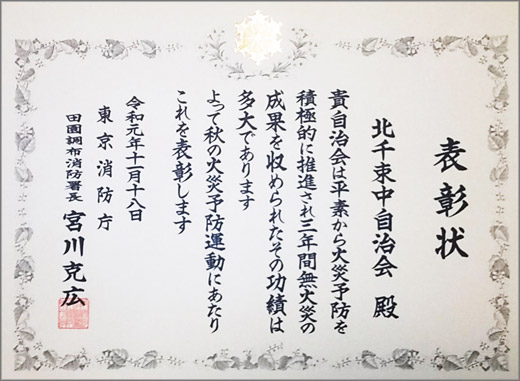 表彰状
北千束中自治会 殿
貴自治会は平素から火災予防を
積極的に推進され三年間無火災の
成果を収められたその功績は
多大であります
よって秋の火災予防運動にあたり
これを表彰します
令和元年十一月十八日
東京消防庁
田園調布消防署長 宮川克広